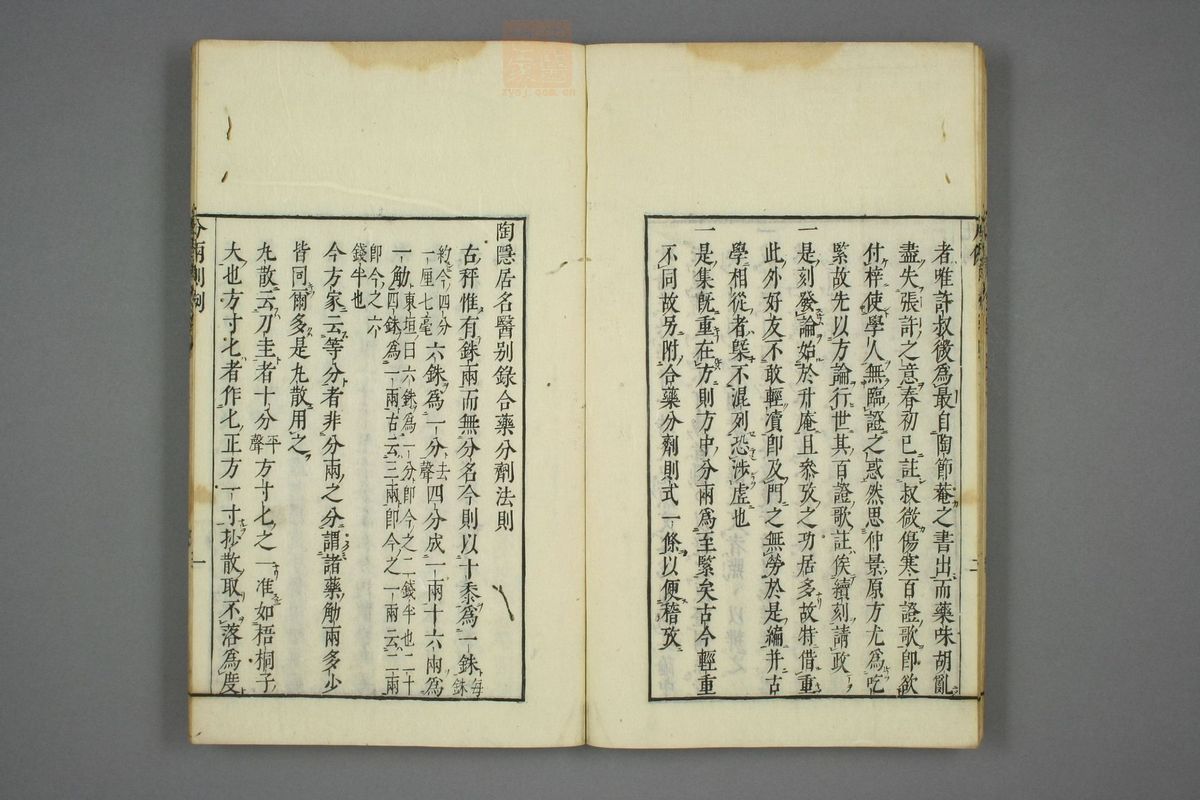 者唯許叔微爲最自陶節菴之書出而藥味胡亂
盡失張許之意春初已註叔微傷寒百證歌卽欲
付梓使學人無臨證之惑然思仲景原方尤爲吃
緊故先以方論行世其百證歌註俟續刻請政
一是刻發論始於升庵且叅攷之功居多故特借重
此外好友不敢輕瀆卽及門之無勞於是編并古
學相從者槩不混列恐涉虛也
一是集旣重在方則方中分兩爲至緊矣古今輕重
不同故另附合藥分劑則式一條以便稽攷
陶隱居名醫别錄合藥分劑法則
古秤惟有銖兩而無分名今則以十黍爲一銖每銖
約今四分一厘七毫六銖爲一分去聲四分成一兩十六兩爲
一觔東垣曰六銖爲一分卽今之二錢半也二十四銖爲一兩古云三兩卽今之一兩云二兩
卽今之六錢半也
今方家云等分者非分兩之分謂諸藥觔兩多少
皆同爾多是丸散用之
丸散云刀圭者十分平聲方寸匕之一准如梧桐子
大也方寸匕者作匕正方一寸抄散取不落爲度
分兩則例
一
二
zyoj.com.cn